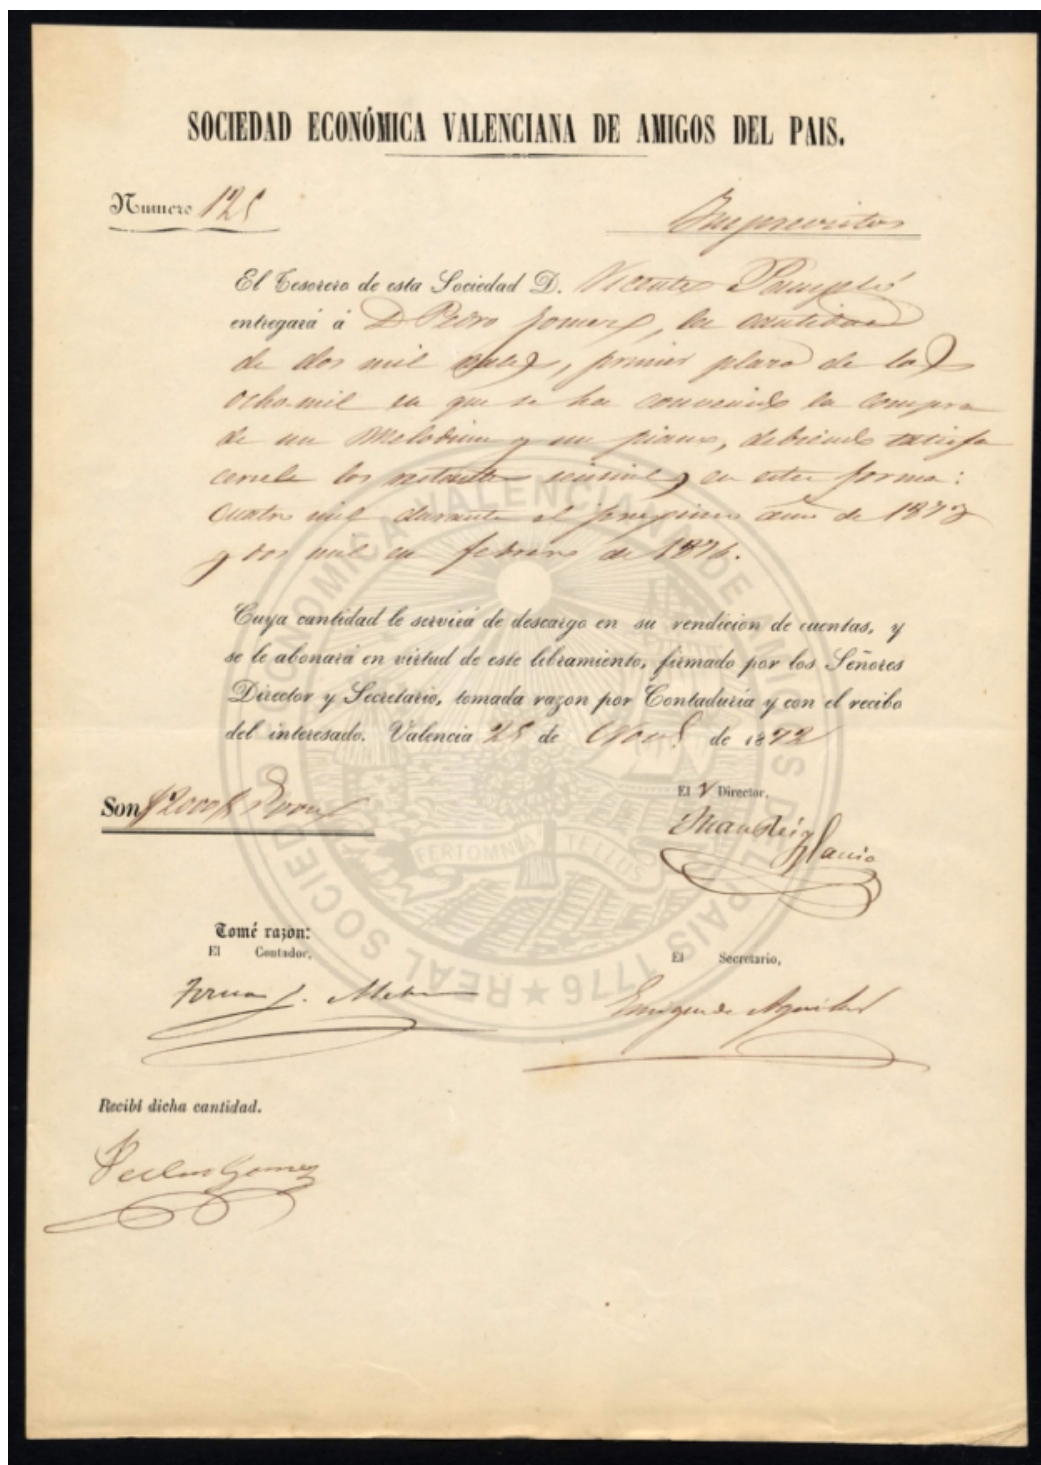 SOCIEDAD ECONÓMICA VALENCIANA DE AMIGOS DEL PAIS.
Numero 125
Imprevistos
El Tesorero de esta Sociedad D. Vicente
entregará á D Pedro Gomez, la cantidad
de dos mil reales, primer plazo de los
ocho mil en que se ha convenido la compra
de un Melodium y un piano, debiendo satisfa
cerсele los restantes seis mil en esta forma:
cuatro mil durante el procsimo año de 1873
y dos mil en febrero de 1874.
Cuya cantidad le servirá de descargo en su rendicion de cuentas, y
se le abonará en virtud de este libramiento, firmado por los Señores
Director y Secretario, tomada razon por Contaduría y con el recibo
del interesado. Valencia 25 de de 1872
Son 2000
El V Director,
Juan Reig
Tomé razon:
El Contador,
El Secretario,
Enrique de Aguilar
Recibí dicha cantidad.
Pedro Gomez
REAL SOCIEDAD ECONOMICA VALENCIANA DE AMIGOS DEL PAIS 1776
FERT OMNIA TELLUS